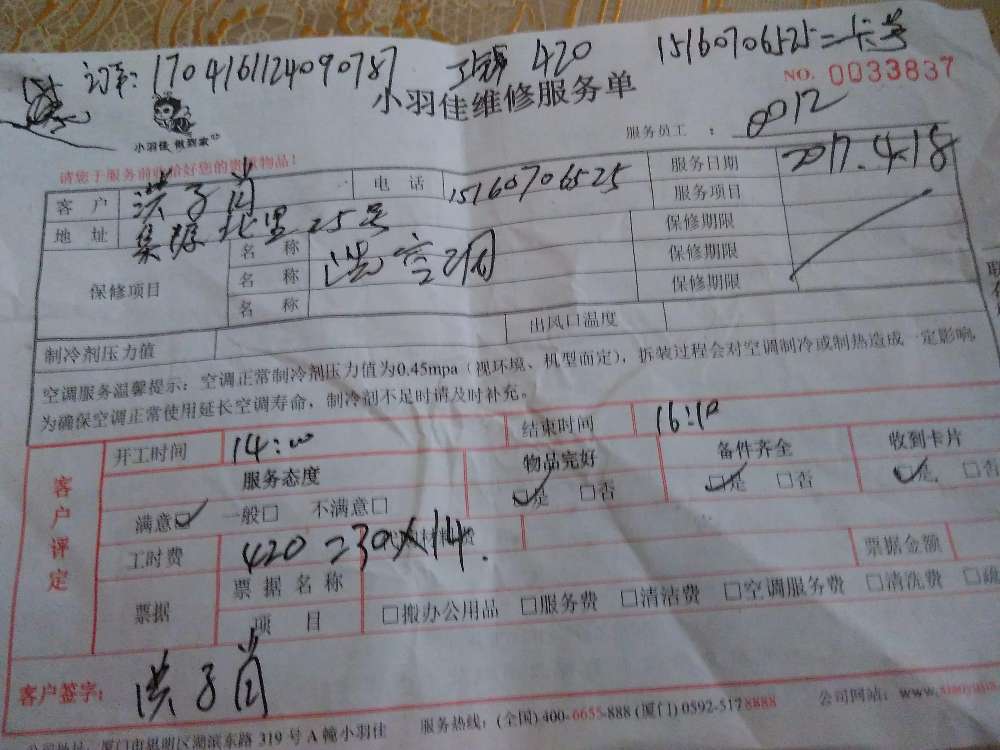 订单: 1704161124090787 420 15160706525=卡号
小羽佳维修服务单 NO. 0033837
小羽佳 做到家
服务员工 : 0012
请您于服务前收拾好您的贵重物品!
客 户 洪子肖 电 话 15160706525 服务日期 2017.4.18
地 址 北里25号 服务项目
保修项目 名 称 洗空调 保修期限
名 称 保修期限
名 称 保修期限
制冷剂压力值 出风口温度
空调服务温馨提示: 空调正常制冷剂压力值为0.45mpa (视环境、机型而定), 拆装过程会对空调制冷或制热造成一定影响,
为确保空调正常使用延长空调寿命, 制冷剂不足时请及时补充。
客户评定
开工时间 14:00 结束时间 16:10
服务态度 物品完好 备件齐全 收到卡片
满意☑ 一般□ 不满意□ ☑是 □否 ☑是 □否 ☑是 □否
工时费 420=30×14. 票据金额
票据 票据名称
项 目 □搬办公用品 □服务费 □清洁费 □空调服务费 □清洗费
客户签字: 洪子肖
公司地址: 厦门市思明区湖滨东路 319 号 A 幢小羽佳 服务热线: (全国) 400-6655-888 (厦门) 0592-5178888 公司网站: www.